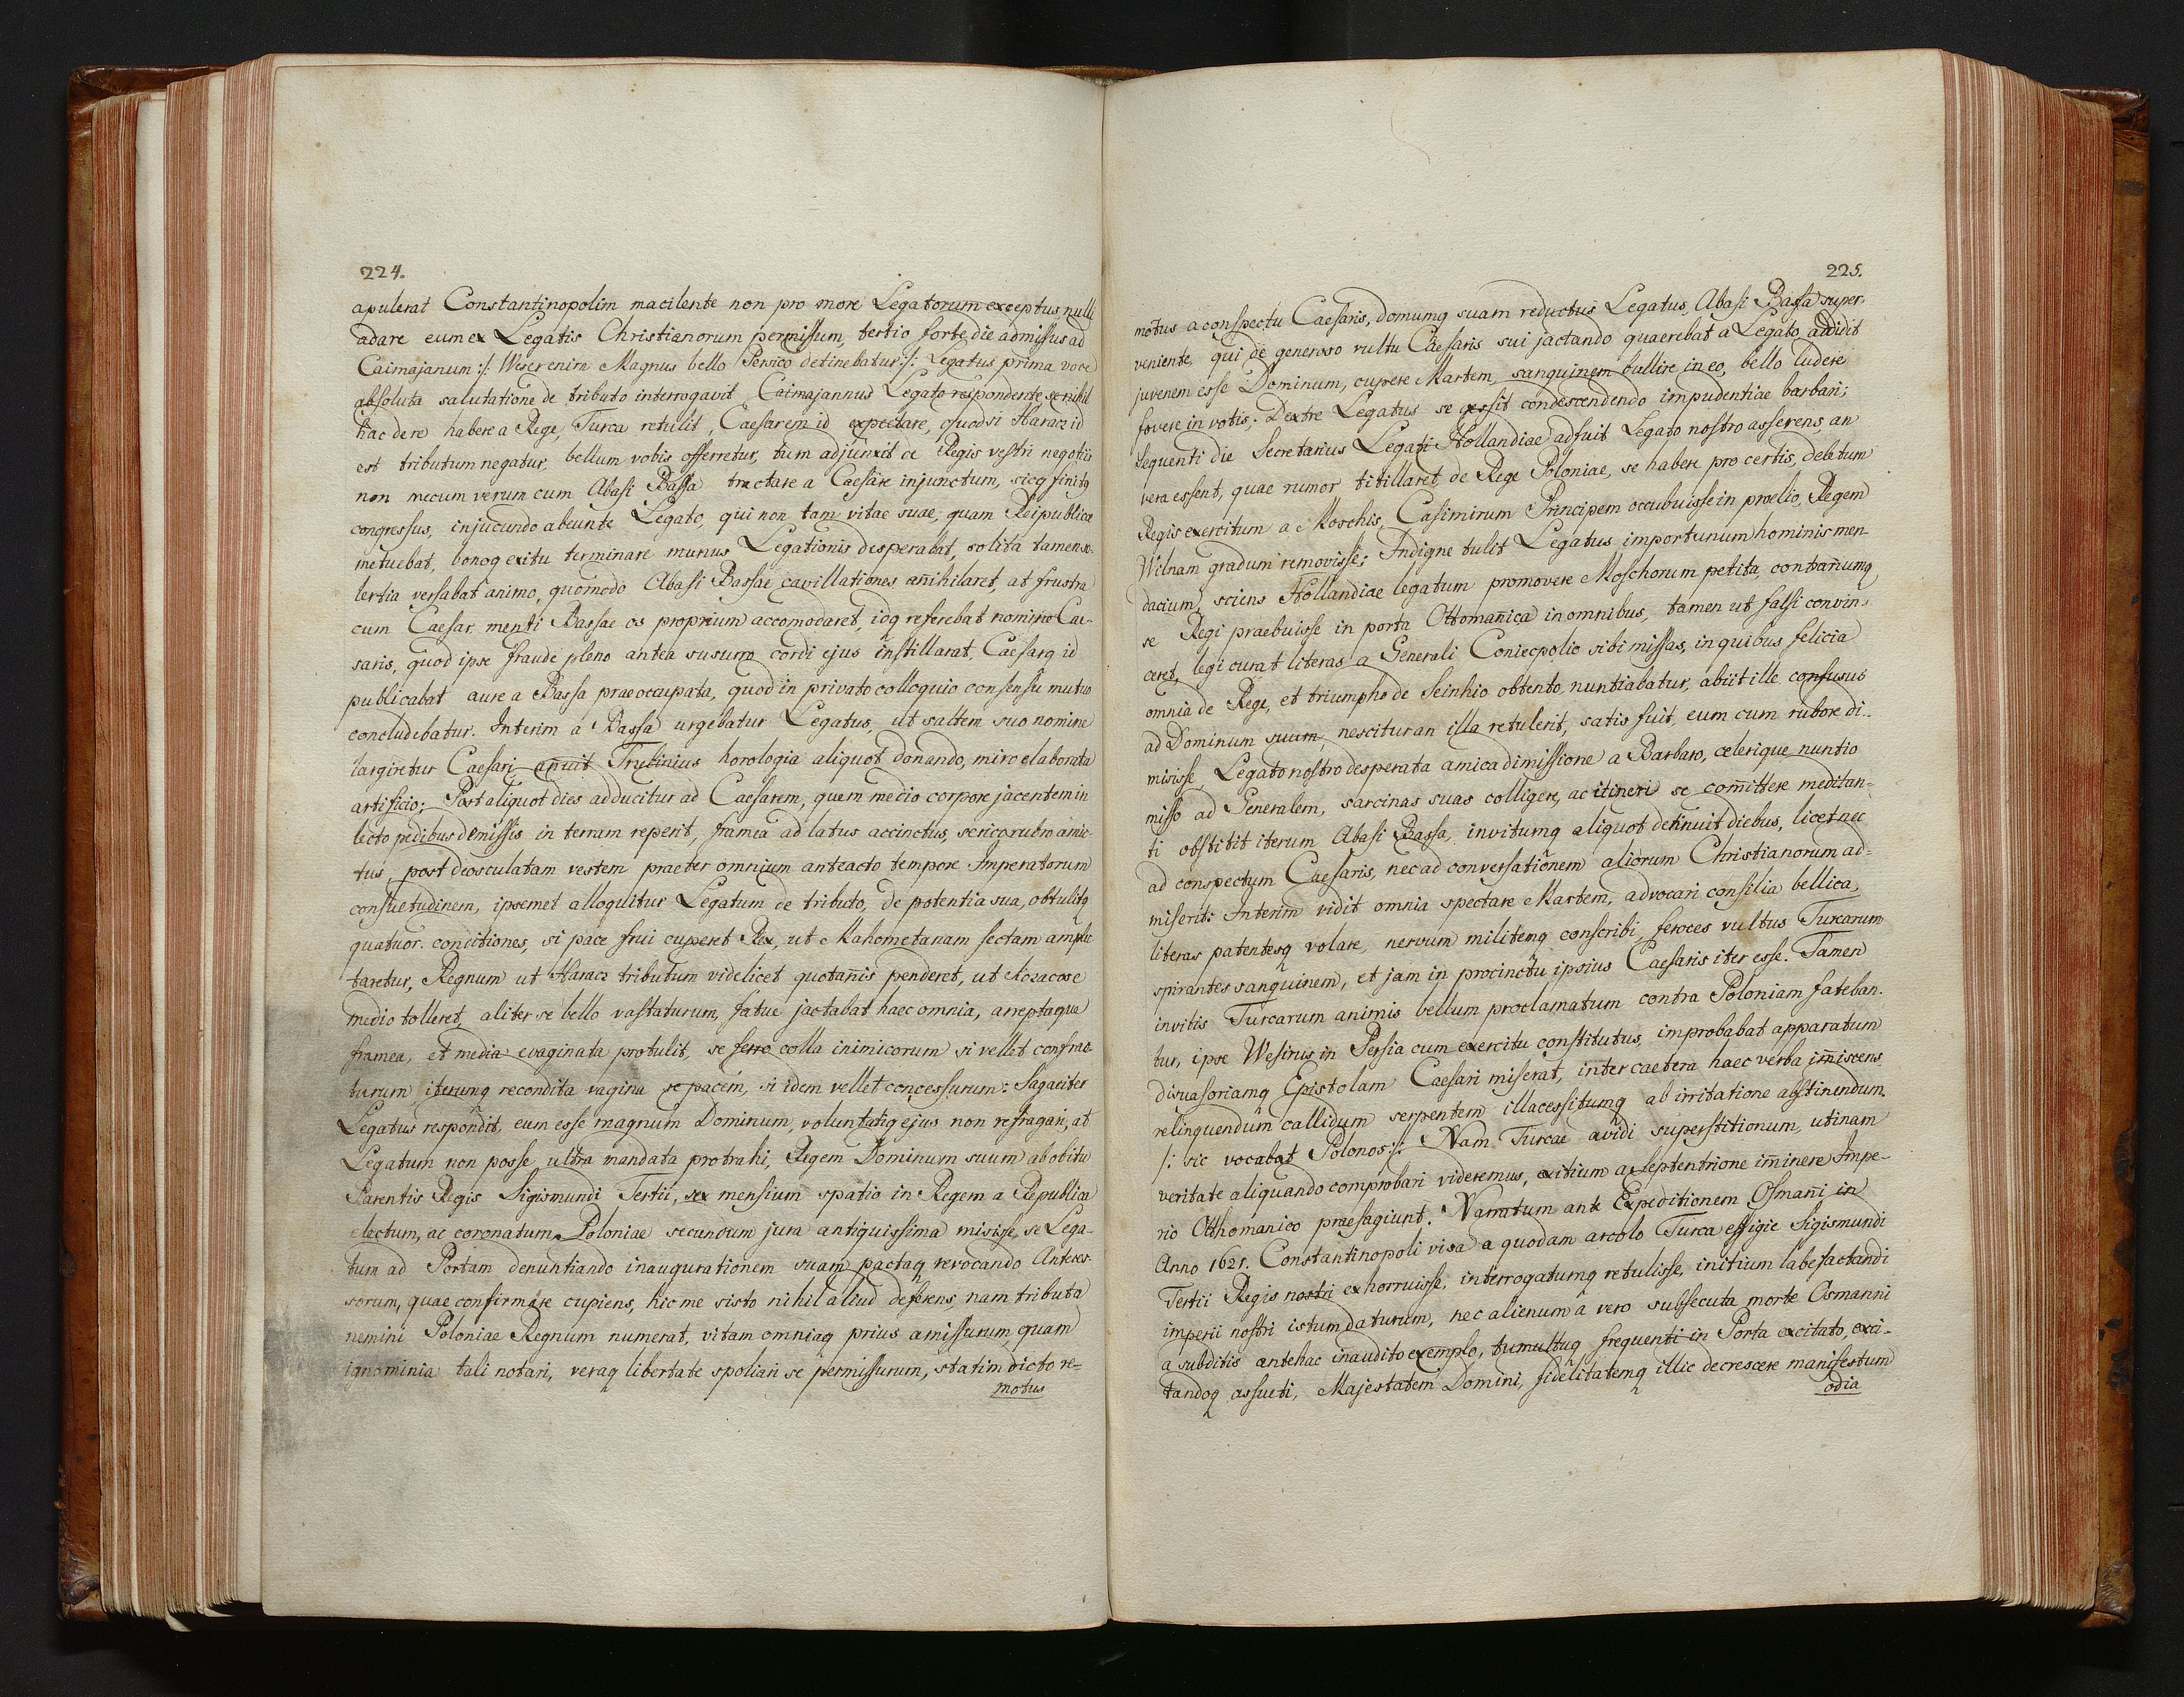 224.
apulerat Constantinopolim macilente non pro more Legatorum exceptus, nulli
adare eum ex Legatis Christianorum permissum, tertio forte die admissus ad
Caimajanum :/: Weser enim Magnus bello Persico detinebatur :/: Legatus prima voce
absoluta salutatione de tributo interrogavit Caimajannus Legato respondente se nihil
hac de re habere a Rege, Turca retulit, Caesarem id expectare, quod si Haracz id
est tributum negatur, bellum vobis offerretur, tum adjunxit de Regis vestri negotiis
non mecum verum cum Abasi Bassa tractare a Caesare injunctum, sicq finitq
congressus, injucundo abeunte Legato, qui non tam vitae suae, quam Reipublicae
metuebat, bonoq exitu terminare munus Legationis desperabat, solita tamen so-
lertia versabat animo, quomodo Abasi Bassae cavillationes anihilaret, at frustra
cum Caesar menti Bassae os proprium accomodaret, idq referebat nomine Cae-
saris, quod ipse fraude pleno antea susurro cordi ejus instillarat, Caesarq id
publicabat aure a Bassa praeoccupata, quod in privato colloquio consensu mutuo
concludebatur. Interim a Bassa urgebatur Legatus, ut saltem suo nomine
largiretur Caesari, anuit Trzebinius horologia aliquot donando, miro elaborata
artificio; Post aliquot dies adducitur ad Caesarem, quem medio corpore jacentem in
lecto pedibus demissis in terram reperit, framea ad latus accinctus, serico rubro amic-
tus, post deosculatam vestem praeter omnium anteacto tempore Imperatorum
consuetudinem, ipsemet alloquitur Legatum de tributo, de potentia sua, obtulitq
quatuor conditiones, si pace frui cuperet Rex, ut Mahometanam sectam amplec
taretur, Regnum ut Haracz tributum videlicet quotanis penderet, ut Kozacos e
medio tolleret, aliter se bello vastaturum, fatue jactabat haec omnia, arreptaque
framea, et media evaginata protulit, se ferro colla inimicorum si vellet confrac-
turum iterumq recondita vagina se pacem, si idem vellet concessurum: Sagaciter
Legatus respondit, eum esse magnum Dominum, voluntatiq ejus non refragari, at
Legatum non posse ultra mandata protrahi, Regem Dominum suum ab obitu
Parentis Regis Sigismundi Tertii, sex mensium spatio in Regem a Republica
electum, ac coronatum Poloniae secundum jura antiquissima misisse, se Lega-
tum ad Portam denuntiando inaugurationem suam pactaq revocando Anteces-
sorum, quae confirmare cupiens, hic me sisto nihil aliud deferens, nam tributa
nemini Poloniae Regnum numerat, vitam omniaq prius amissurum, quam
ignominia tali notari, veraq libertate spoliari se permissurum, statim dicto re=
motus
225.
motus a conspectu Caesaris, domumq suam reductus Legatus, Abasi Bassa super-
veniente, qui de generoso vultu Caesaris sui jactando quaerebat a Legato, addidit
juvenem esse Dominum, cupere Martem, sanguinem bullire in eo, bello ludere
fovere in votis; Dextre Legatus se gessit condescendendo impudentiae barbari;
Sequenti die Secretarius Legati Hollandiae adfuit Legato nostro asserens, an
vera essent, quae rumor titillaret de Rege Poloniae, se habere pro certis, deletum
Regis exercitum a Moschis, Casimirum Principem occubuisse in proelio, Regem
Wilnam gradum removisse; Indigne tulit Legatus importunum hominis men-
dacium, sciens Hollandiae legatum promovere Moschorum petita, contrariumq
se Regi praebuisse in porta Ottomanica in omnibus, tamen ut falsi convin-
ceret, legi curat literas a Generali Coniecpolio sibi missas, in quibus felicia
omnia de Rege, et triumpho de Seinhio obtento, nuntiabatur, abiit ille confusus
ad Dominum suum, nescitur an illa retulerit, satis fuit, eum cum rubore di-
misisse, Legato nostro desperata amica dimissione a Barbaro, celerique nuntio
misso ad Generalem, sarcinas suas colligere, ac itineri se comittere meditan-
ti obstitit iterum Abasi Bassa, invitumq aliquot detinuit diebus, licet nec
ad conspectum Caesaris, nec ad conversationem aliorum Christianorum ad=
miserit: Interim vidit omnia spectare Martem, advocari consilia bellica,
literas patentesq volare, nervum militemq conscribi, feroces vultus Turcarum
spirantes sanguinem, et jam in procinctu ipsius Caesaris iter esse. Tamen
invitis Turcarum animis bellum proclamatum contra Poloniam fateban-
tur, ipse Wesirus in Persia cum exercitu constitutus, improbabat apparatum
disuasoriamq Epistolam Caesari miserat, inter caetera haec verba imiscens
relinquendum callidum serpentem illacessitumq ab irritatione abstinendum
/: sic vocabat Polonos :/: Nam Turcae avidi superstitionum, utinam
veritate aliquando comprobari videremus, exitium a Septentrione iminere Impe-
rio Otthomanico praesagiunt. Narratum ante Expeditionem Osmani in
Anno 1621. Constantinopoli visa a quodam areolo Turca effigie Sigismundi
Tertii Regis nostri exhorruisse, interrogatumq retulisse, initium labefactandi
imperii nostri istum daturum, nec alienum a vero subsecuta morte Osmanni
a subditis antehac inaudito exemplo, tumultuq frequenti in Porta excitato, exci-
tandoq assueti, Majestatem Domini, fidelitatemq illic decrescere manifestum
odia